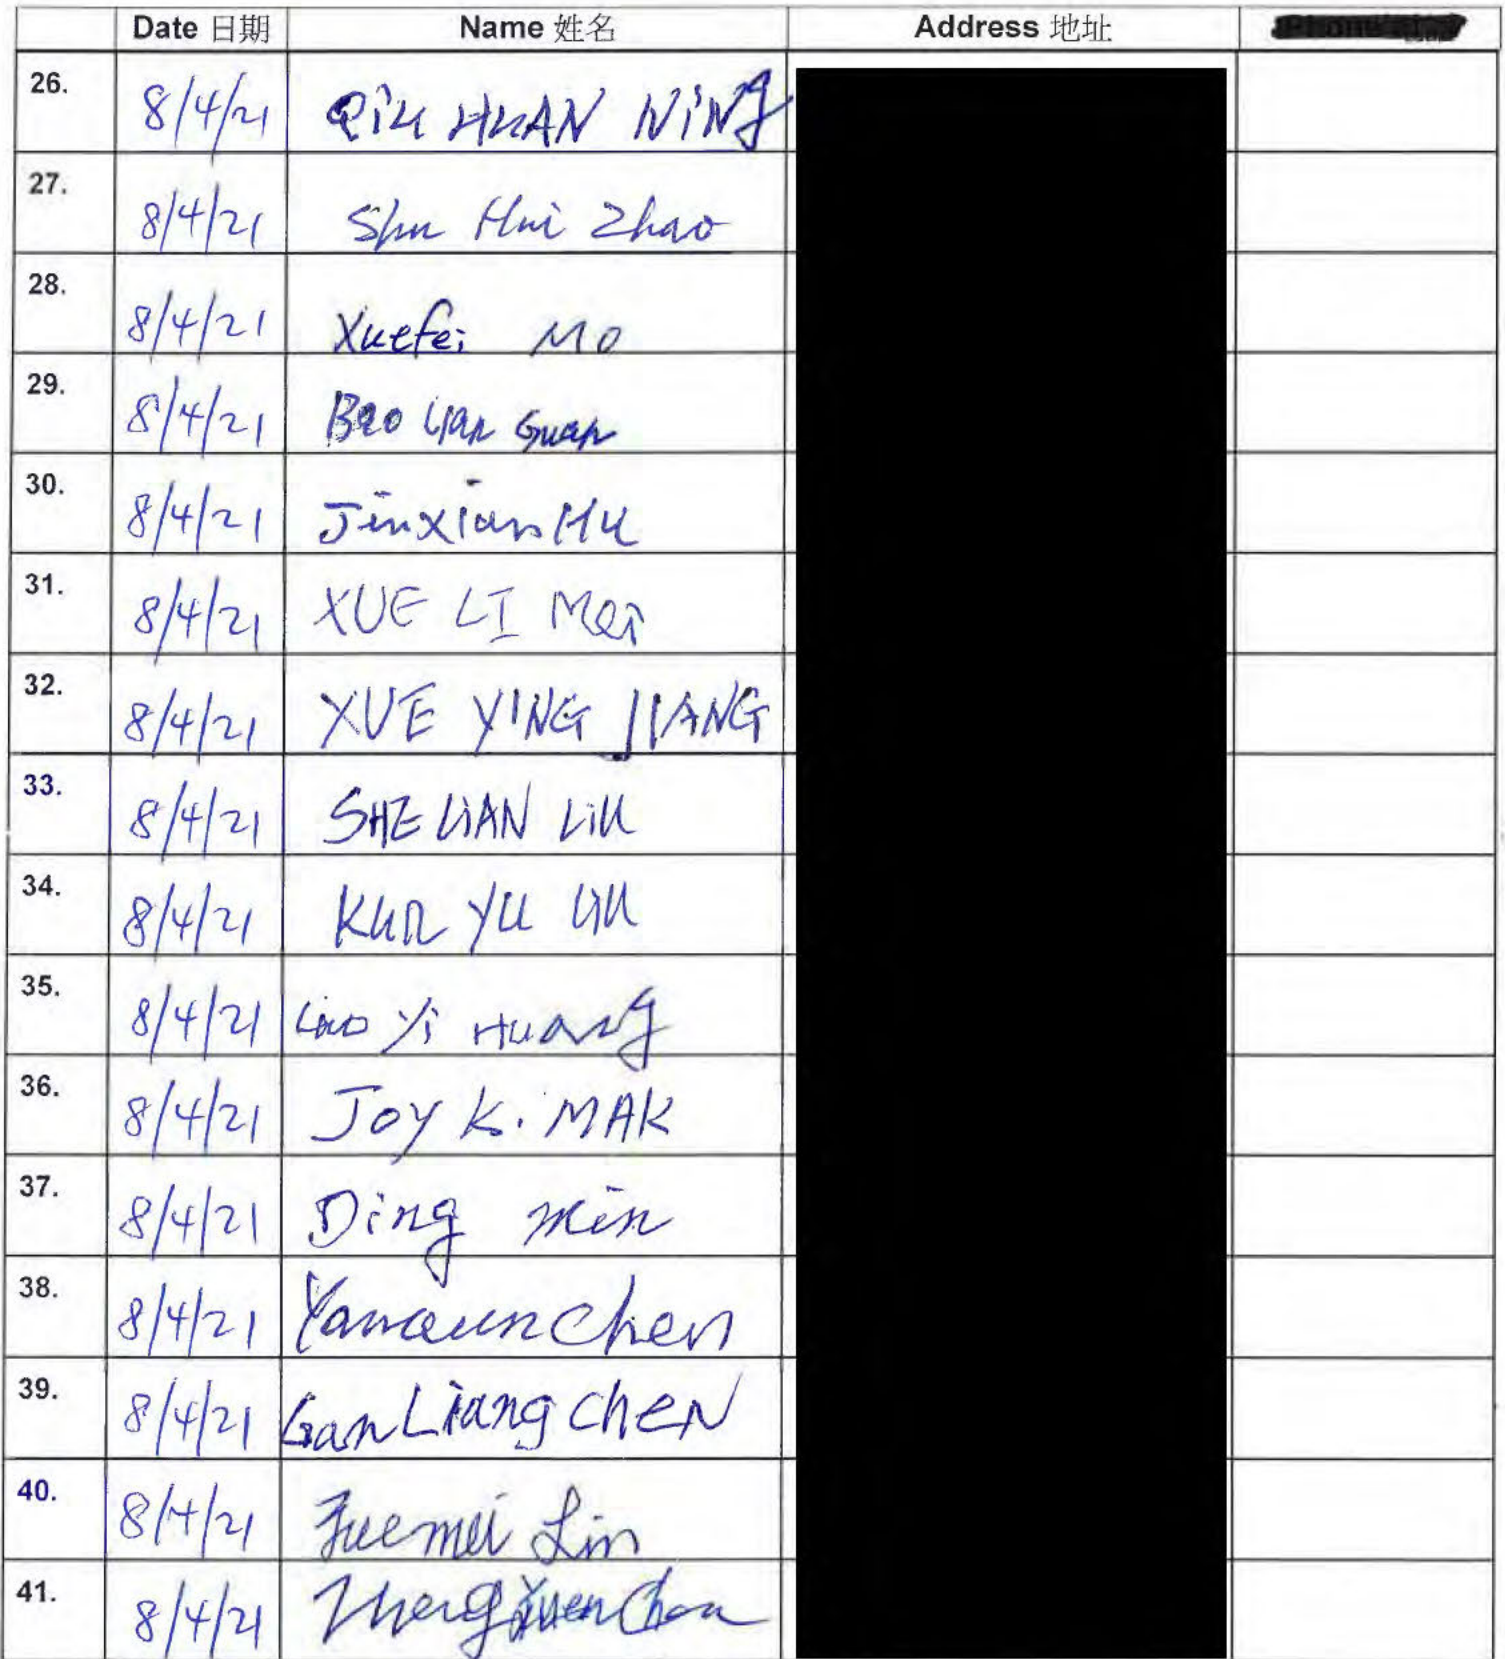 Date 日期 Name 姓名 Address 地址
26. 8/4/21 QiU HUAN NiNg
27. 8/4/21 Shu Hui Zhao
28. 8/4/21 Xuefei MO
29. 8/4/21 Bao Lian Guan
30. 8/4/21 Jinxian Hu
31. 8/4/21 XUE LI Mei
32. 8/4/21 XUE YING JIANG
33. 8/4/21 SHE LiAN LiU
34. 8/4/21 Kun YU LiU
35. 8/4/21 Yi Huang
36. 8/4/21 Joy K. MAK
37. 8/4/21 Ding min
38. 8/4/21 Chen
39. 8/4/21 Gan Liang CheN
40. 8/4/21 Lin
41. 8/4/21